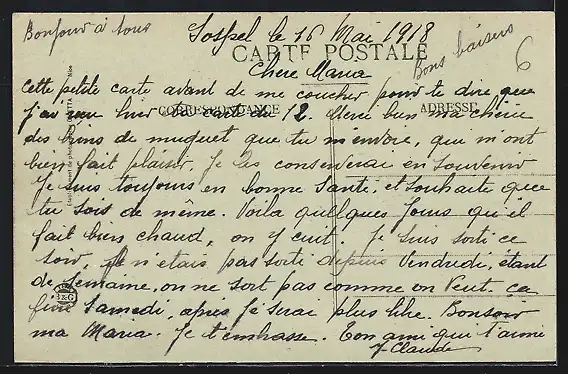 Bonjour à tous
Sospel le 16 Mai 1918
CARTE POSTALE
Bons baisers
6
Chere Maria
CORRESPONDANCE
ADRESSE
Cette petite carte avant de me coucher pour te dire que
j'ai hier ta cart du 12. Merci bien ma chérie
des brins de muguet que tu m'envoie, qui m'ont
bien fait plaisir. Je les conserverai en souvenir
Je suis toujours en bonne santé, et souhaite que
tu sois de même. Voila quelques jours qu'il
fait bien chaud, on y cuit. Je suis sorti ce
soir, je n'étais pas sorti depuis Vendredi, étant
de semaine, on ne sort pas comme on veut. ça
fini Samedi, après je serai plus libre. Bonsoir
ma Maria. Je t'embrasse. Ton ami qui t'aime
Claude
B&G